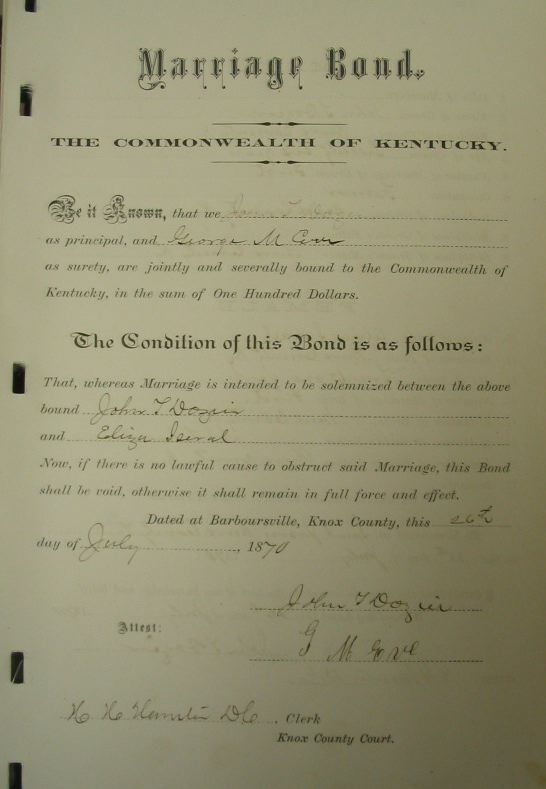 Marriage Bond.
THE COMMONWEALTH OF KENTUCKY.
Be it Known, that we John T Dozier
as principal, and George M
as surety, are jointly and severally bound to the Commonwealth of
Kentucky, in the sum of One Hundred Dollars.
The Condition of this Bond is as follows:
That, whereas Marriage is intended to be solemnized between the above
bound John T Dozier
and Eliza
Now, if there is no lawful cause to obstruct said Marriage, this Bond
shall be void, otherwise it shall remain in full force and effect.
Dated at Barboursville, Knox County, this 26th
day of July, 1870
John T Dozier
Attest:
G M
H H DC. Clerk
Knox County Court.